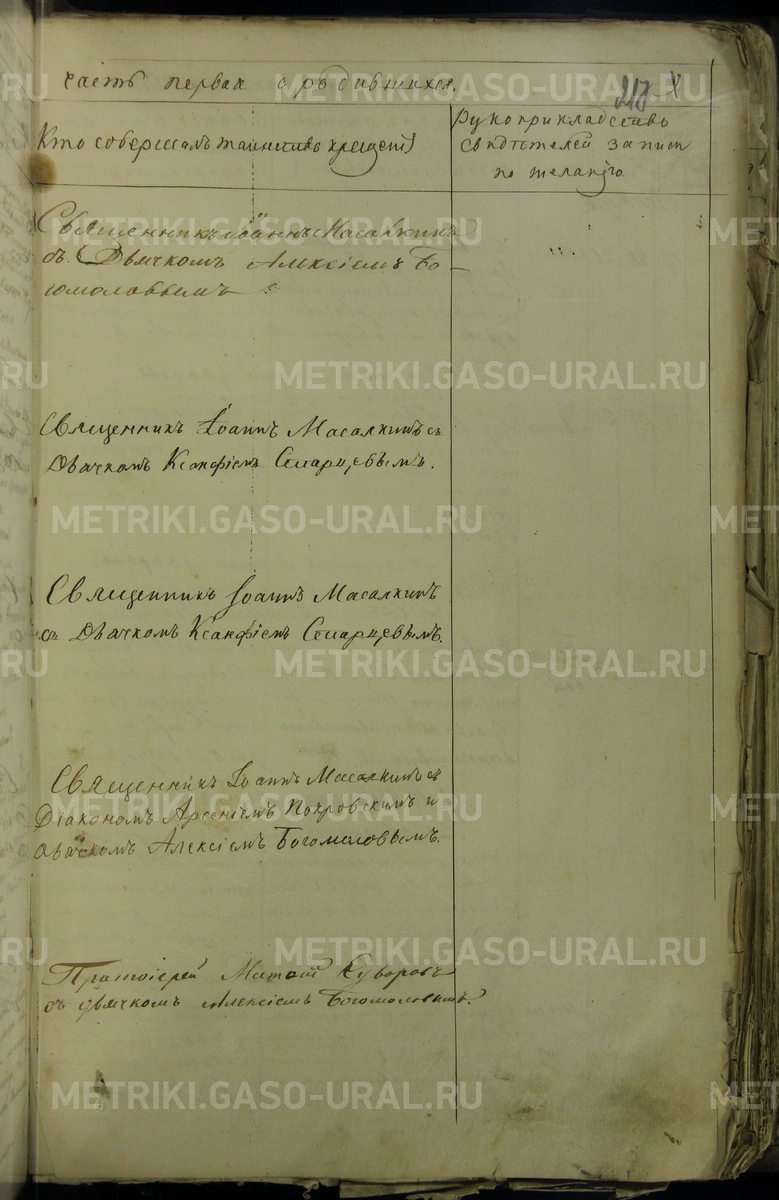 часть первая о родившихся.
Кто совершалъ таинство крещенія
Рукоприкладство
свидѣтелей записи
по желанію
Священникъ Іоаннъ Масалкинъ
съ Дьячкомъ Алексіемъ Бо-
гомоловымъ
Священникъ Іоаннъ Масалкинъ съ
Дьячкомъ Ксанфіемъ
Священникъ Іоаннъ Масалкинъ
съ Дьячкомъ Ксанфіемъ
Священникъ Іоаннъ Масалкинъ съ
Діакономъ Арсеніемъ Покровскимъ и
дьячкомъ Алексіемъ Богомоловымъ.
Протоіерей Суворовъ
съ дьячкомъ Алексіемъ Богомоловымъ.
METRIKI.GASO-URAL.RU